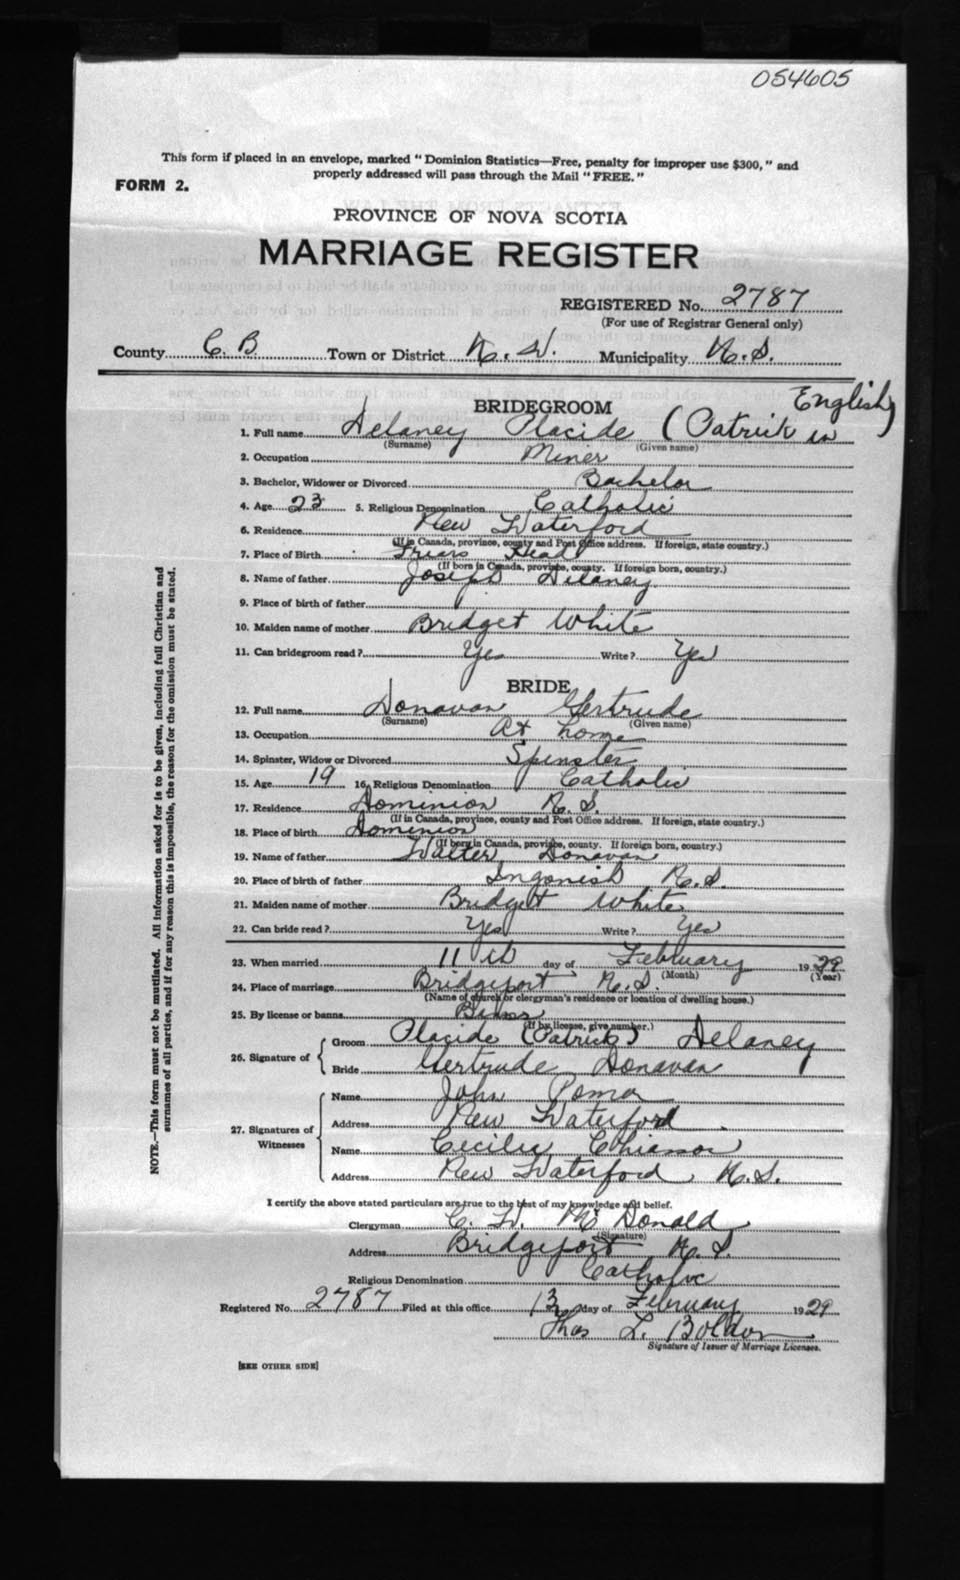 054605
This form if placed in an envelope, marked "Dominion Statistics—Free, penalty for improper use $300," and
properly addressed will pass through the Mail "FREE."
FORM 2.
PROVINCE OF NOVA SCOTIA
MARRIAGE REGISTER
REGISTERED No. 2787
(For use of Registrar General only)
County C. B. Town or District N. W. Municipality N. S.
BRIDEGROOM
1. Full name Delaney Placide (Patrick in English)
(Surname) (Given name)
2. Occupation Miner
3. Bachelor, Widower or Divorced Bachelor
4. Age 23 5. Religious Denomination Catholic
6. Residence New Waterford
(If in Canada, province, county and Post Office address. If foreign, state country.)
7. Place of Birth Friars Head
(If born in Canada, province, county. If foreign born, country.)
8. Name of father Joseph Delaney
9. Place of birth of father
10. Maiden name of mother Bridget White
11. Can bridegroom read? Yes Write? Yes
BRIDE
12. Full name Donavan Gertrude
(Surname) (Given name)
13. Occupation At home
14. Spinster, Widow or Divorced Spinster
15. Age 19 16. Religious Denomination Catholic
17. Residence Dominion N. S.
(If in Canada, province, county and Post Office address. If foreign, state country.)
18. Place of birth Dominion
(If born in Canada, province, county. If foreign born, country.)
19. Name of father Walter Donavan
20. Place of birth of father Ingonish N. S.
21. Maiden name of mother Bridget White
22. Can bride read? Yes Write? Yes
23. When married 11th day of February 1929
(Month) (Year)
24. Place of marriage Bridgeport N. S.
(Name of church or clergyman's residence or location of dwelling house.)
25. By license or banns Banns
(If by license, give number.)
26. Signature of Groom Placide (Patrick) Delaney
Bride Gertrude Donavan
27. Signatures of Witnesses Name John
Address New Waterford
Name Cecilia Chiasson
Address New Waterford, N. S.
I certify the above stated particulars are true to the best of my knowledge and belief.
Clergyman C. W. McDonald
(Signature)
Address Bridgeport N. S.
Religious Denomination Catholic
Registered No. 2787 Filed at this office 13 day of February 1929
Thos L.
Signature of Issuer of Marriage Licenses.
[SEE OTHER SIDE]
NOTE.—This form must not be mutilated. All information asked for is to be given, including full Christian and
surnames of all parties, and if for any reason this is impossible, the reason for the omission must be stated.